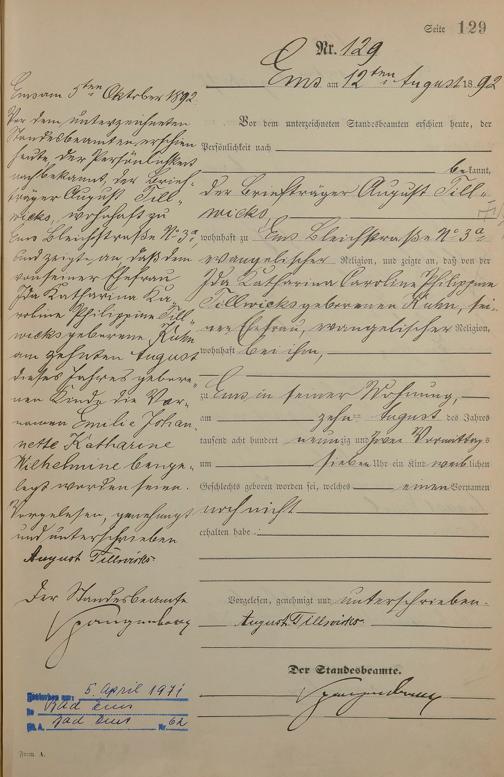 Seite 129
Nr. 129
Ems am 12ten August 1892
Vor dem unterzeichneten Standesbeamten erschien heute, der
Persönlichkeit nach
bekannt,
der Briefträger August Till-
wicks
wohnhaft zu Ems Bleichstraße No 3a
evangelischer Religion, und zeigte an, daß von der
Ida Katharina Caroline Philippine
Tillwicks geborenen Kuhn, sei-
ner Ehefrau, evangelischer Religion,
wohnhaft bei ihm,
zu Ems in seiner Wohnung,
am zehn August des Jahres
tausend acht hundert neunzig und zwei Vormittags
um sieben Uhr ein Kind weiblichen
Geschlechts geboren worden sei, welches einen Vornamen
noch nicht
erhalten habe.
Vorgelesen, genehmigt und unterschrieben.
August Tillwicks
Der Standesbeamte.
Spangenberg
Ems am 5ten Oktober 1892.
Vor dem unterzeichneten
Standesbeamten erschien
heute, der Persönlichkeit
nach bekannt, der Brief-
träger August Till-
wicks, wohnhaft zu
Ems Bleichstraße No 3a,
und zeigte an, daß dem
von seiner Ehefrau
Ida Katharina Ka-
roline Philippine Till-
wicks geborene Kuhn
am zehnten August
dieses Jahres gebore-
nen Kinde die Vor-
namen Emilie Johan-
nette Katharine
Wilhelmine beige-
legt worden seien.
Vorgelesen, genehmigt
und unterschrieben
August Tillwicks
Der Standesbeamte
Spangenberg
Gestorben am: 5. April 1971
in Bad Ems
St. A. Bad Ems Nr. 62
Form. A.